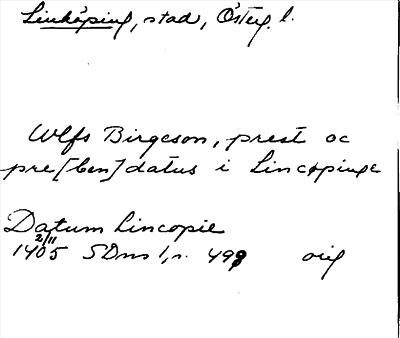 Linköping, stad, Österg. l.
Ulfs Birgeson, prest oc
pre[ben]datus i Lincøpinge
Datum Lincopie
2/11
1405 SDns 1, n. 499 orig